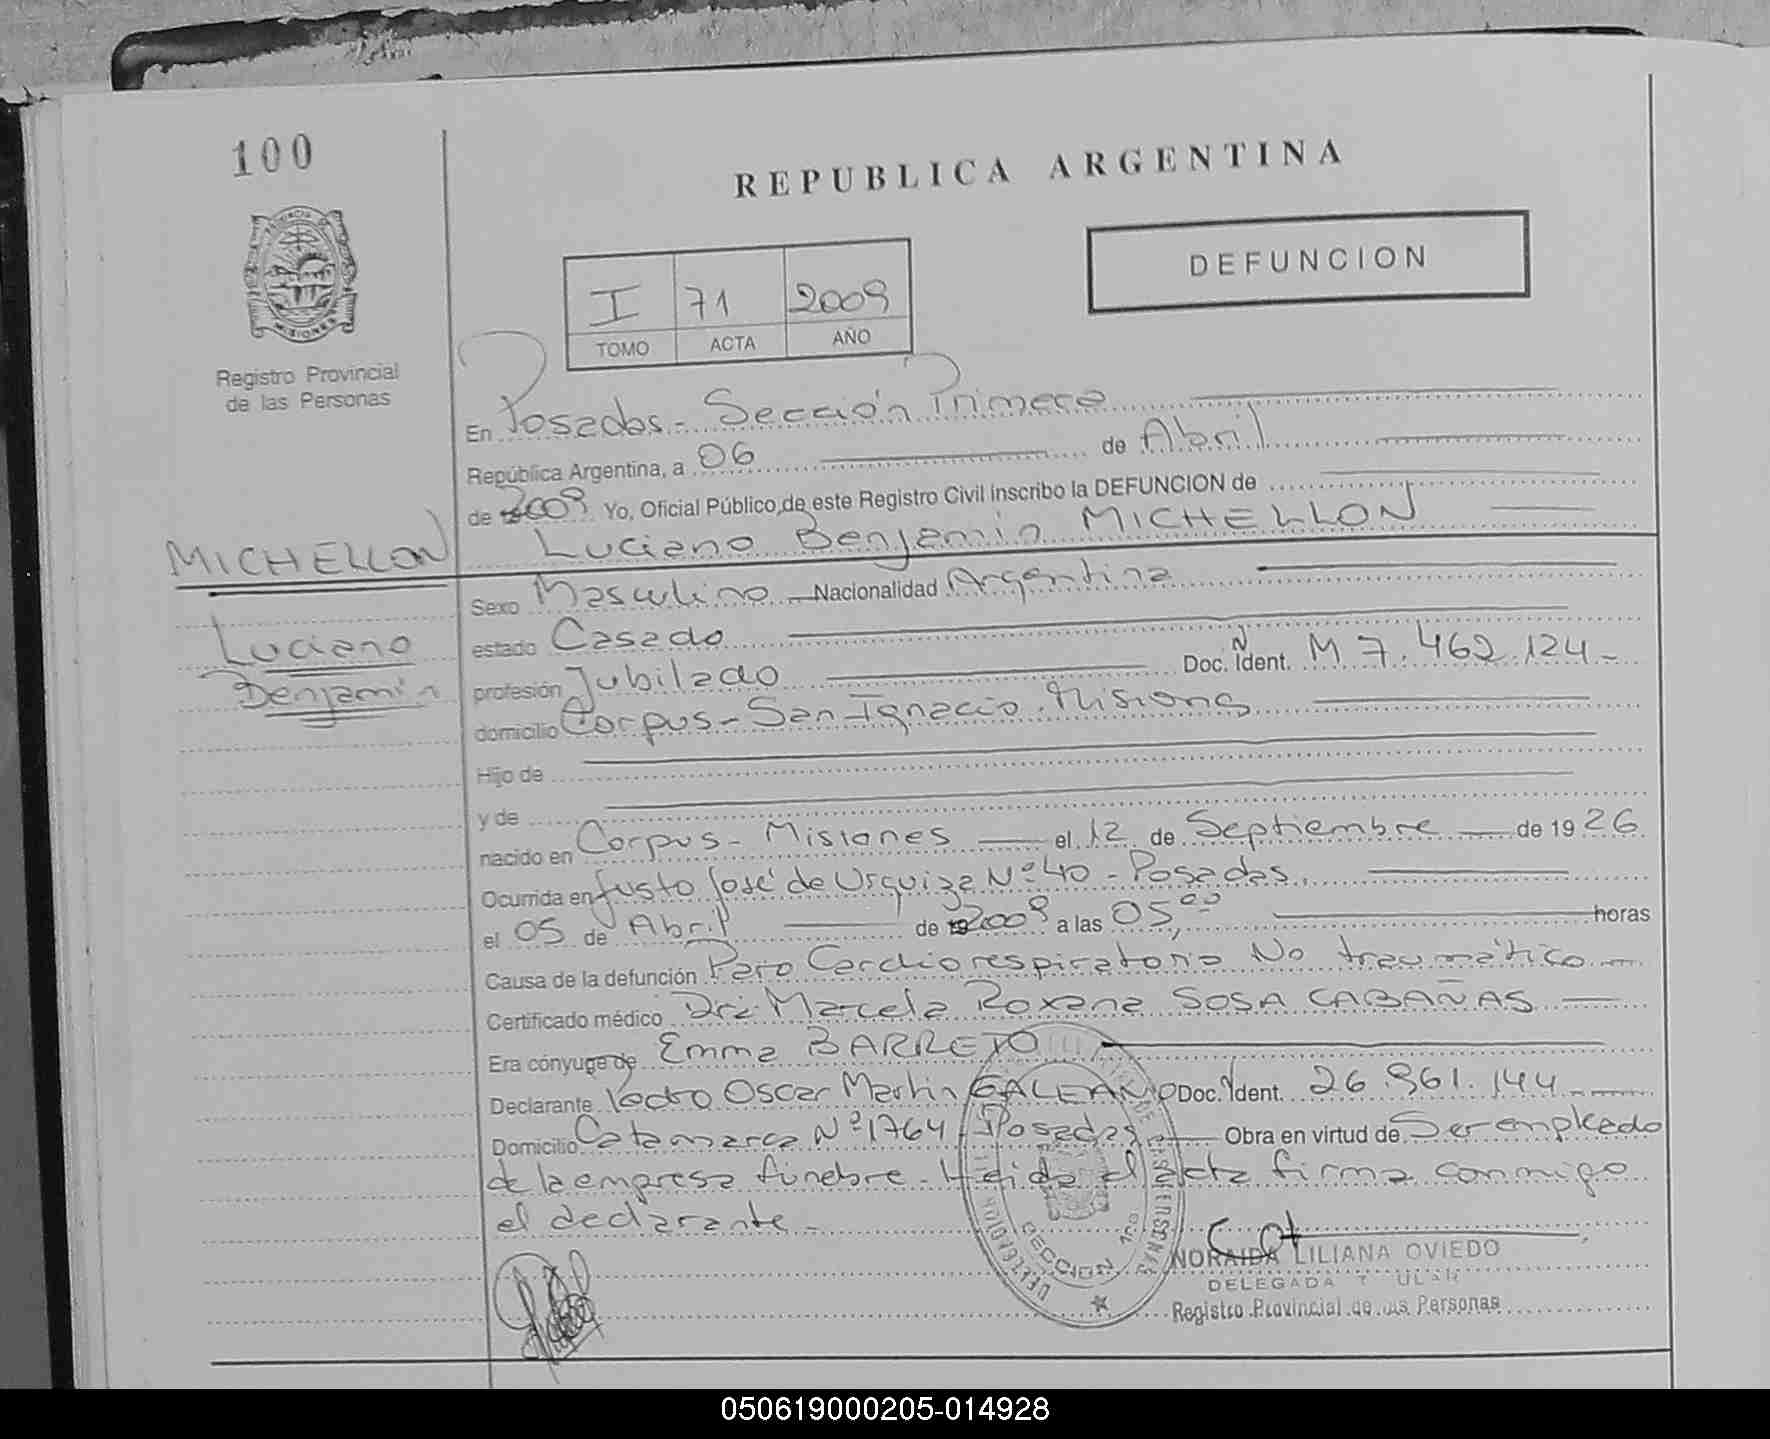 100
REPUBLICA ARGENTINA
DEFUNCION
I 71 2009
TOMO ACTA AÑO
MISIONES
Registro Provincial
de las Personas
En Posadas - Sección Primera
República Argentina, a 06 de Abril
de 2009 Yo, Oficial Público de este Registro Civil inscribo la DEFUNCION de
MICHELLON Luciano Benjamin MICHELLON
Sexo Masculino Nacionalidad Argentina
Luciano
estado Casado
Benjamin
profesión Jubilado Doc. Ident. M 7.462.124-
domicilio Corpus - San Ignacio. Misiones
Hijo de
y de
nacido en Corpus - Misiones el 12 de Septiembre de 1926
Ocurrida en Justo José de Urquiza Nº 40 - Posadas.
el 05 de Abril de 2009 a las 05,00 horas
Causa de la defunción Paro Cardiorespiratorio No traumático
Certificado médico Dra Marcela Roxana SOSA CABAÑAS
Era cónyuge de Emma BARRETO
Declarante Pedro Oscar Martin GALEANO Doc. Ident. 26.961.144
Domicilio Catamarca Nº 1764 - Posadas Obra en virtud de Ser empleado
de la empresa fúnebre - Leida el acta firma conmigo
el declarante -
NORAIDA LILIANA OVIEDO
DELEGADA
Registro Provincial de las Personas
050619000205-014928